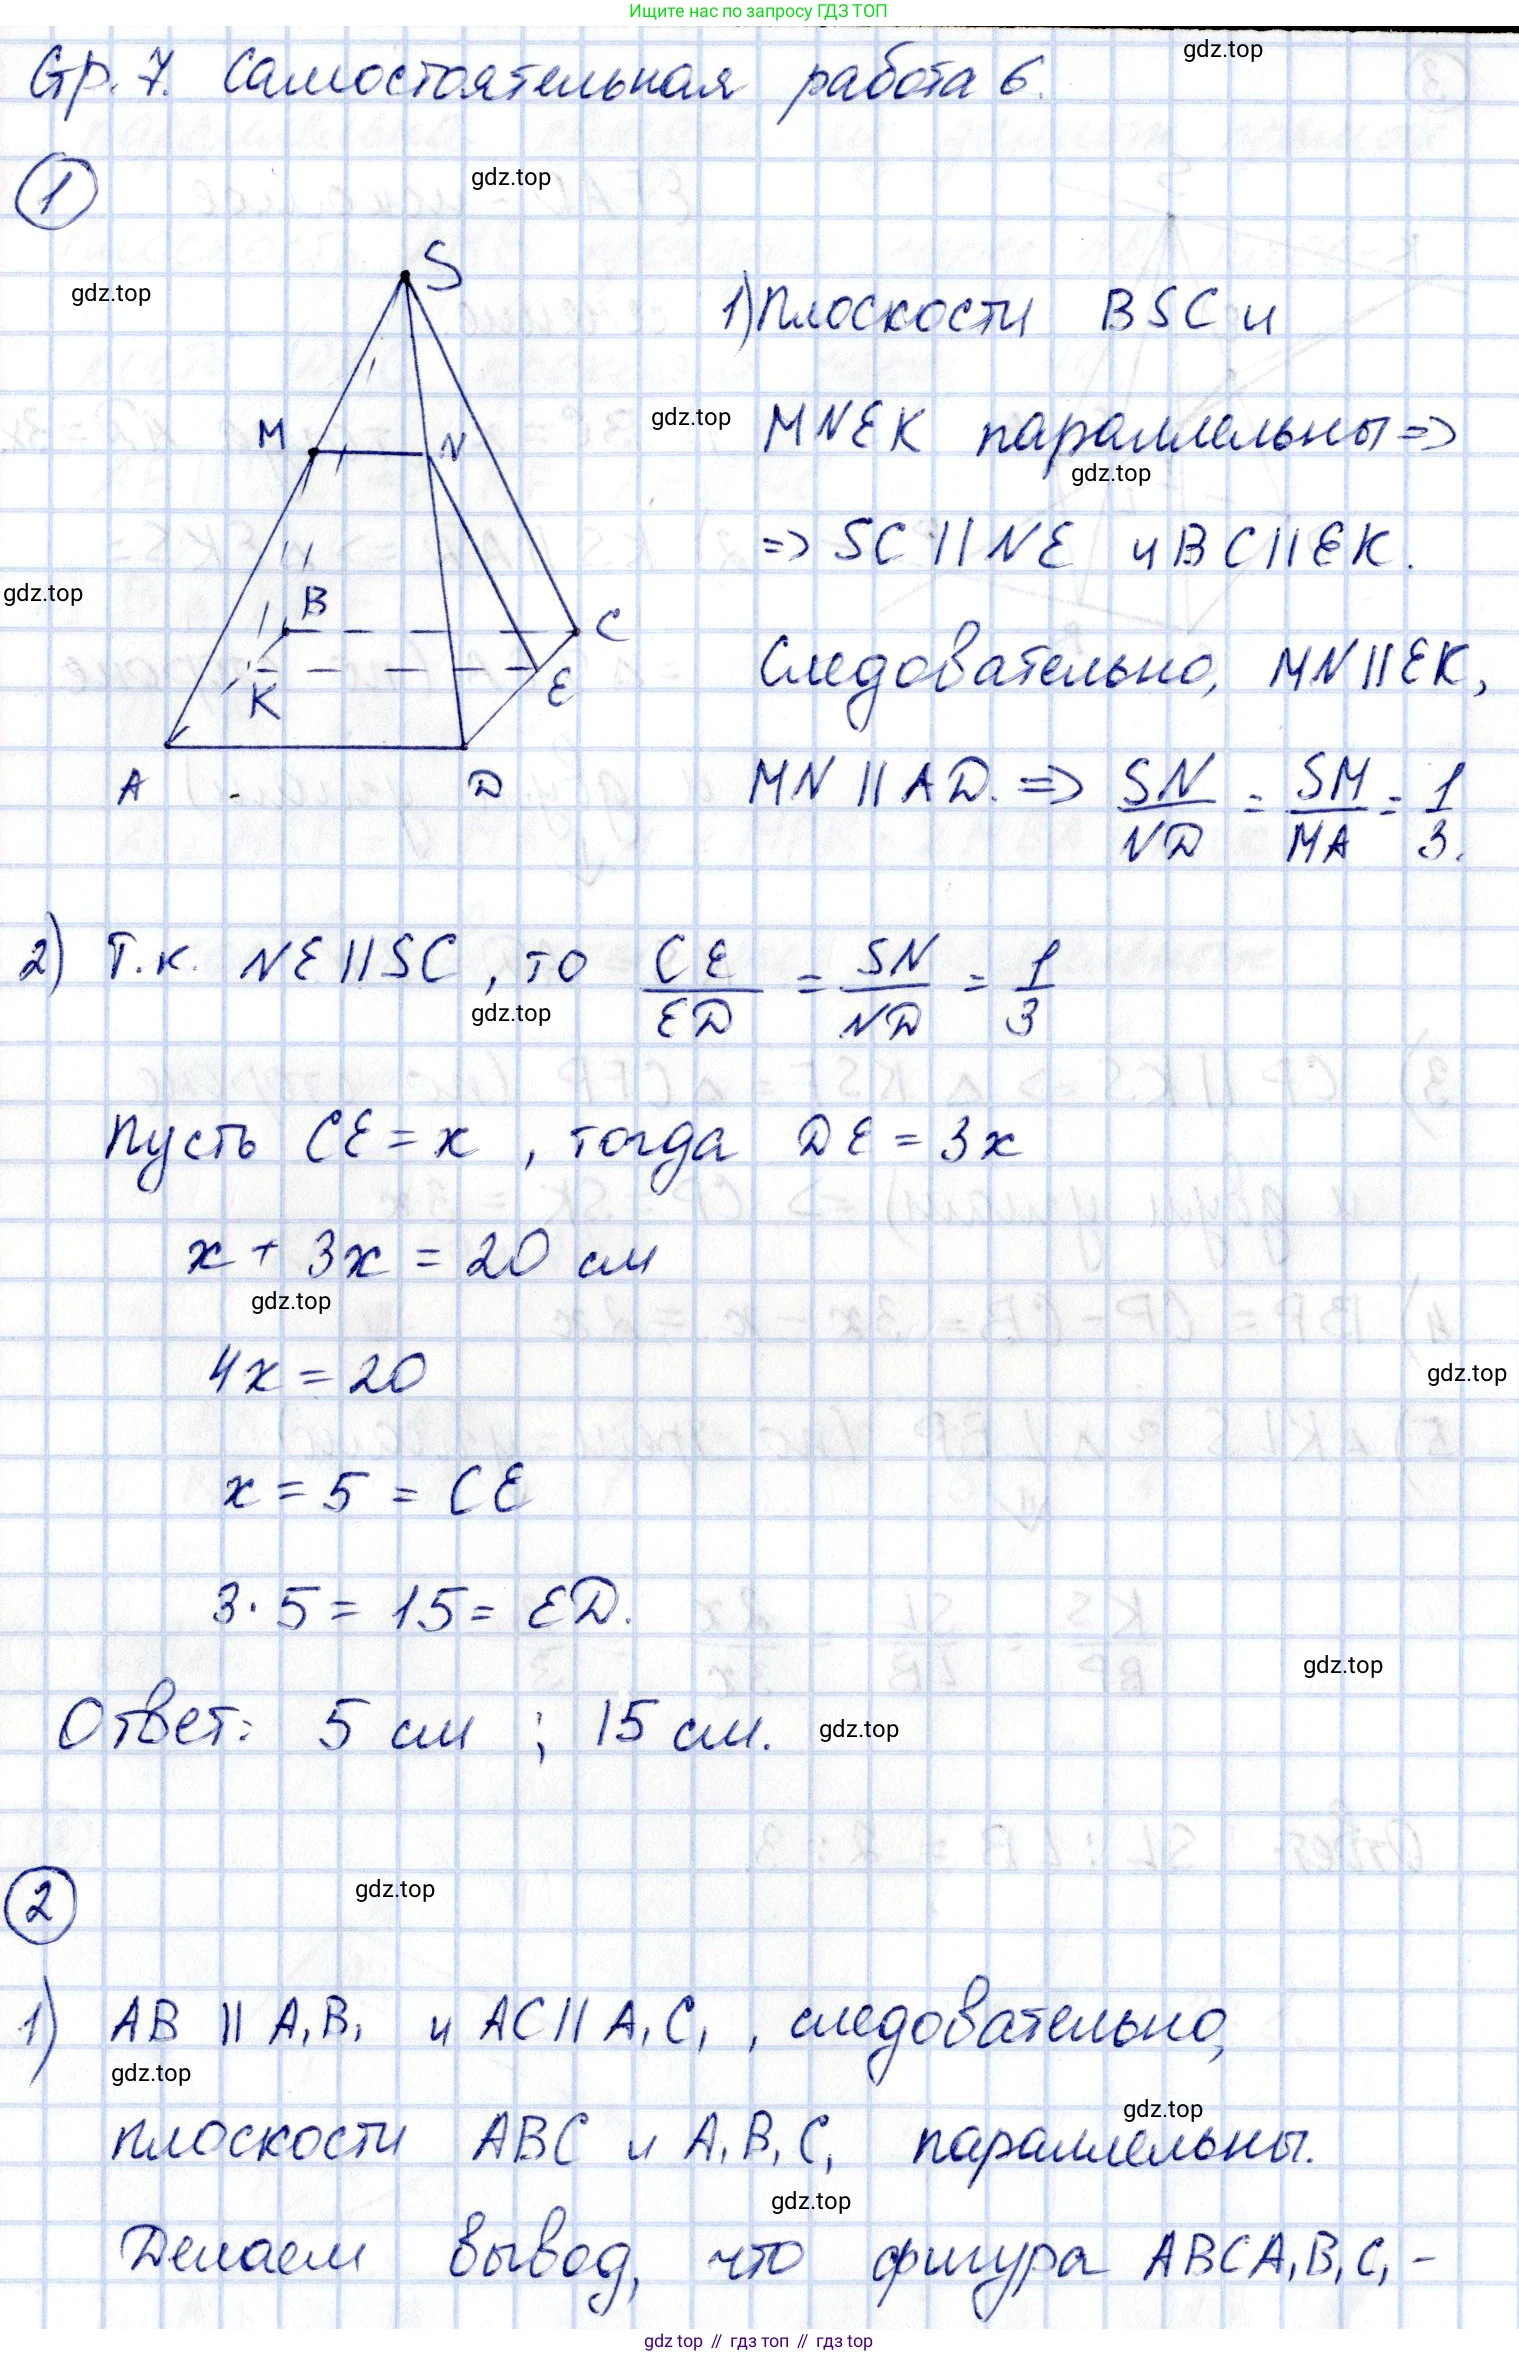 Ищите нас по запросу ГДЗ ТОП
gdz.top
Стр. 7. Самостоятельная работа 6.
1
gdz.top
S
gdz.top
1) Плоскости BSC и
M
N
gdz.top
MNEK параллельны =>
gdz.top
=> SC || NE и BC || EK.
gdz.top
B
C
K
E
Следовательно, MN || EK,
A
D
MN || AD. => SN/ND = SM/MA = 1/3.
2) Т.к. NE || SC, то CE/ED = SN/ND = 1/3
gdz.top
Пусть CE = x, тогда DE = 3x
x + 3x = 20 см
gdz.top
4x = 20
gdz.top
x = 5 = CE
3 · 5 = 15 = ED.
gdz.top
Ответ: 5 см ; 15 см.
gdz.top
2
gdz.top
1) AB || A₁B₁ и AC || A₁C₁, следовательно,
gdz.top
gdz.top
плоскости ABC и A₁B₁C₁ параллельны.
gdz.top
Делаем вывод, что фигура ABCA₁B₁C₁ –
gdz top // гдз топ // гдз top